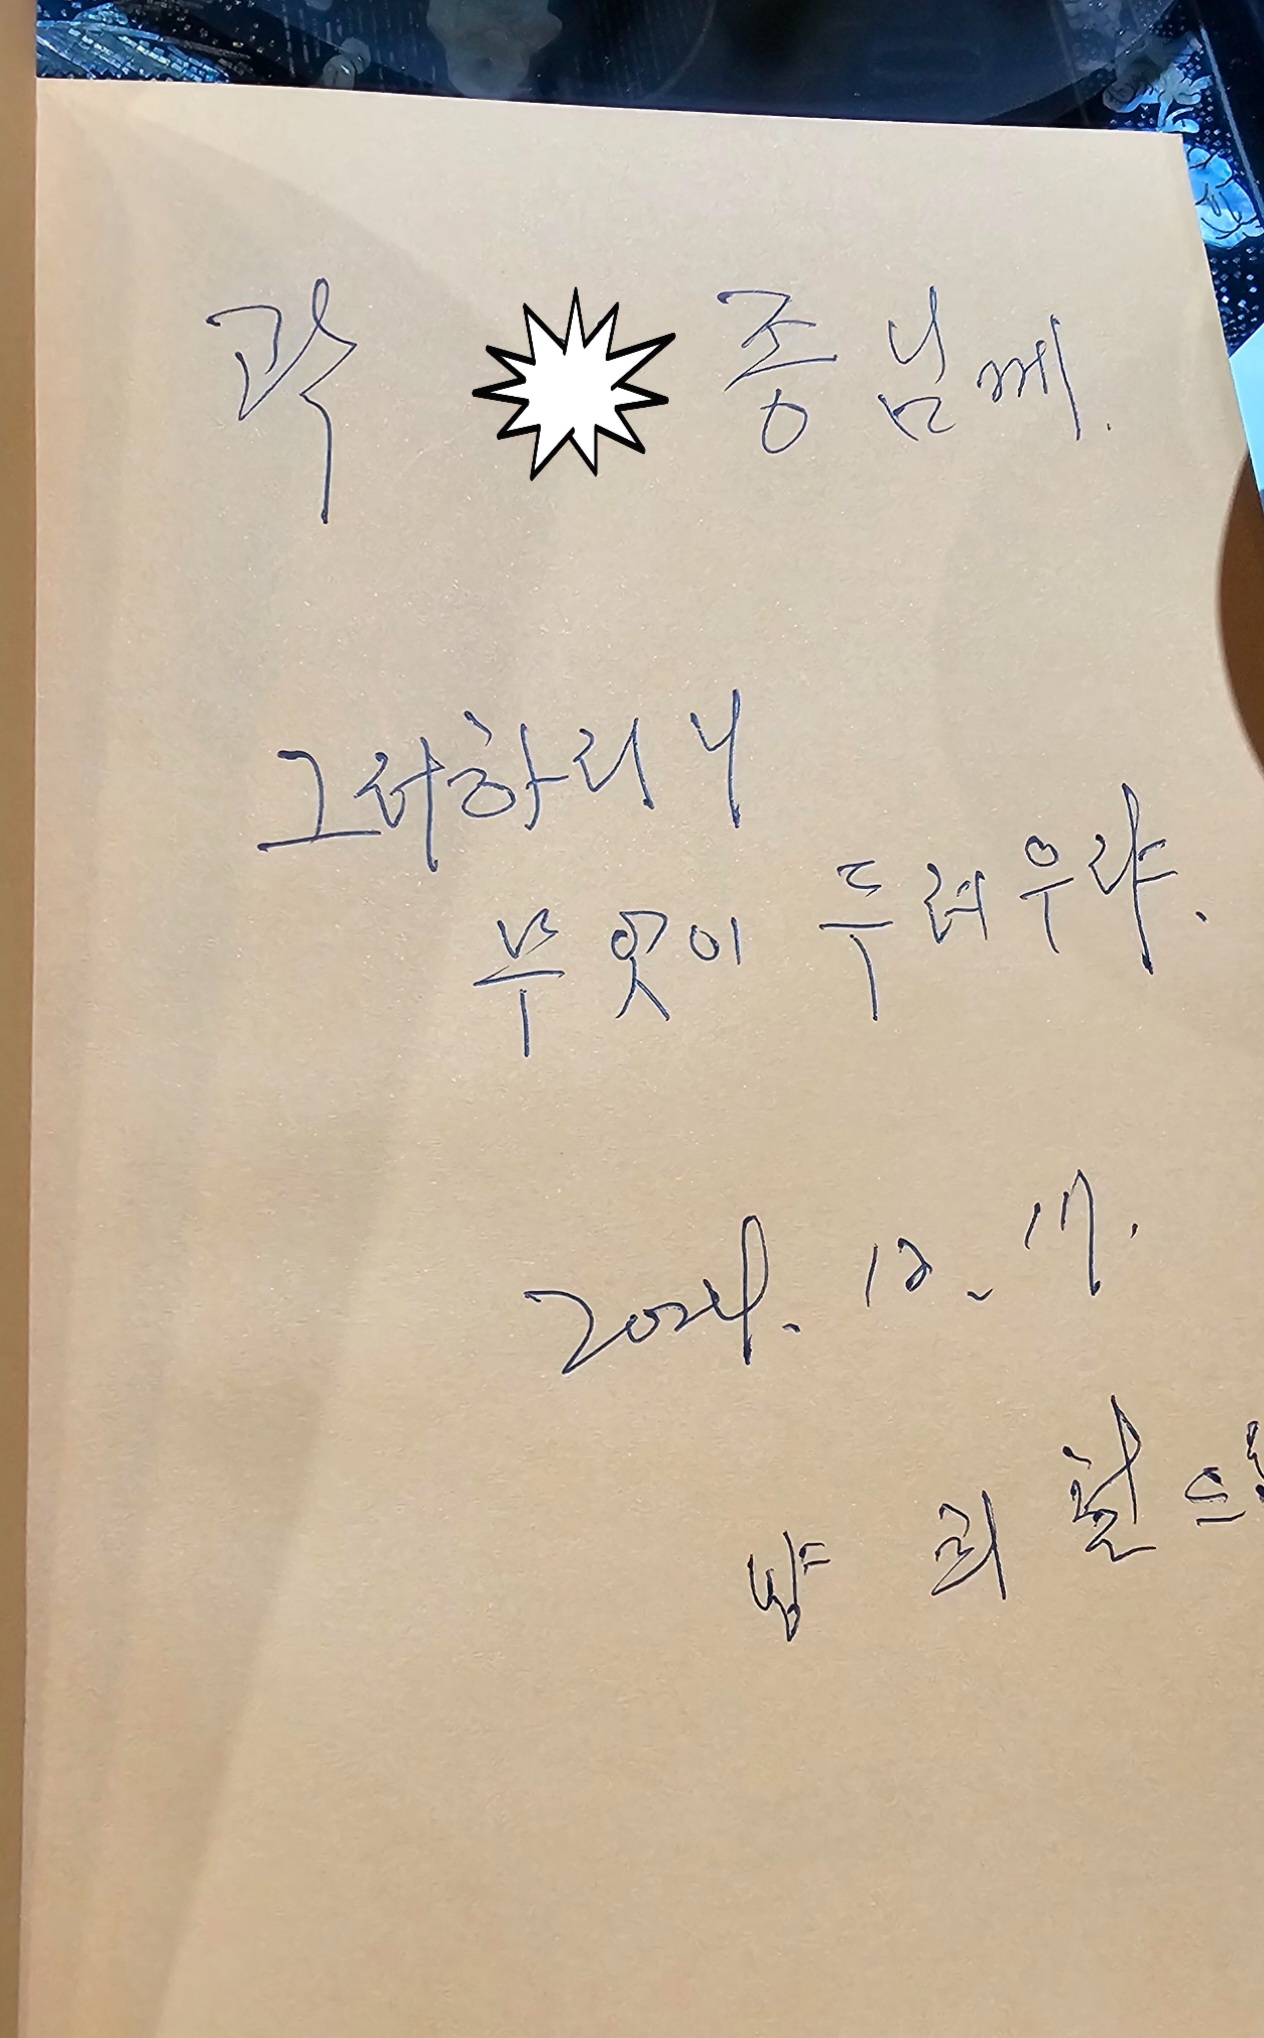 곽 종님께.
그러하리니
무엇이 두려우랴.
2024. 12. 17.
양 희철